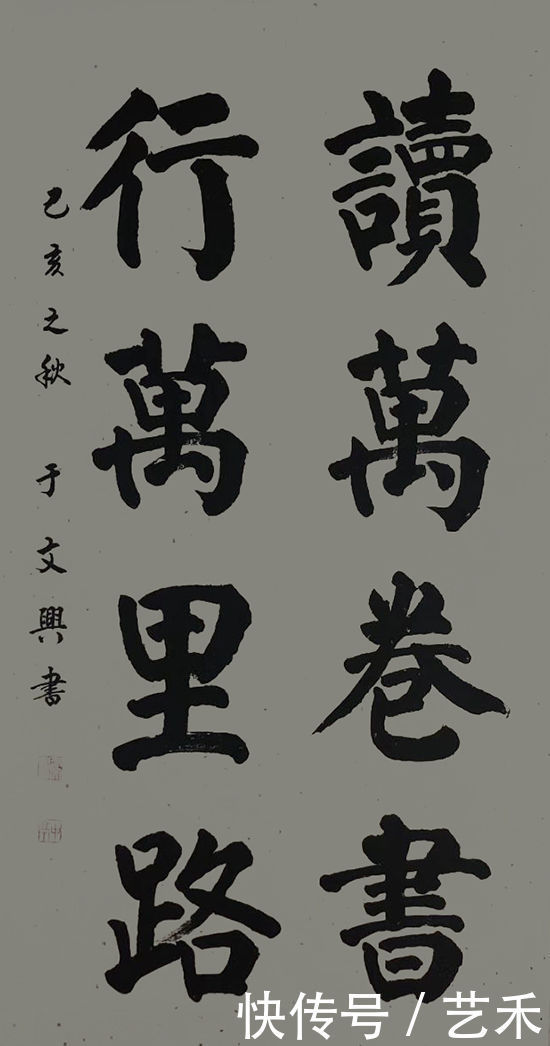 讀萬卷書
行萬里路
己亥之秋 于文興書
快传号 / 艺禾